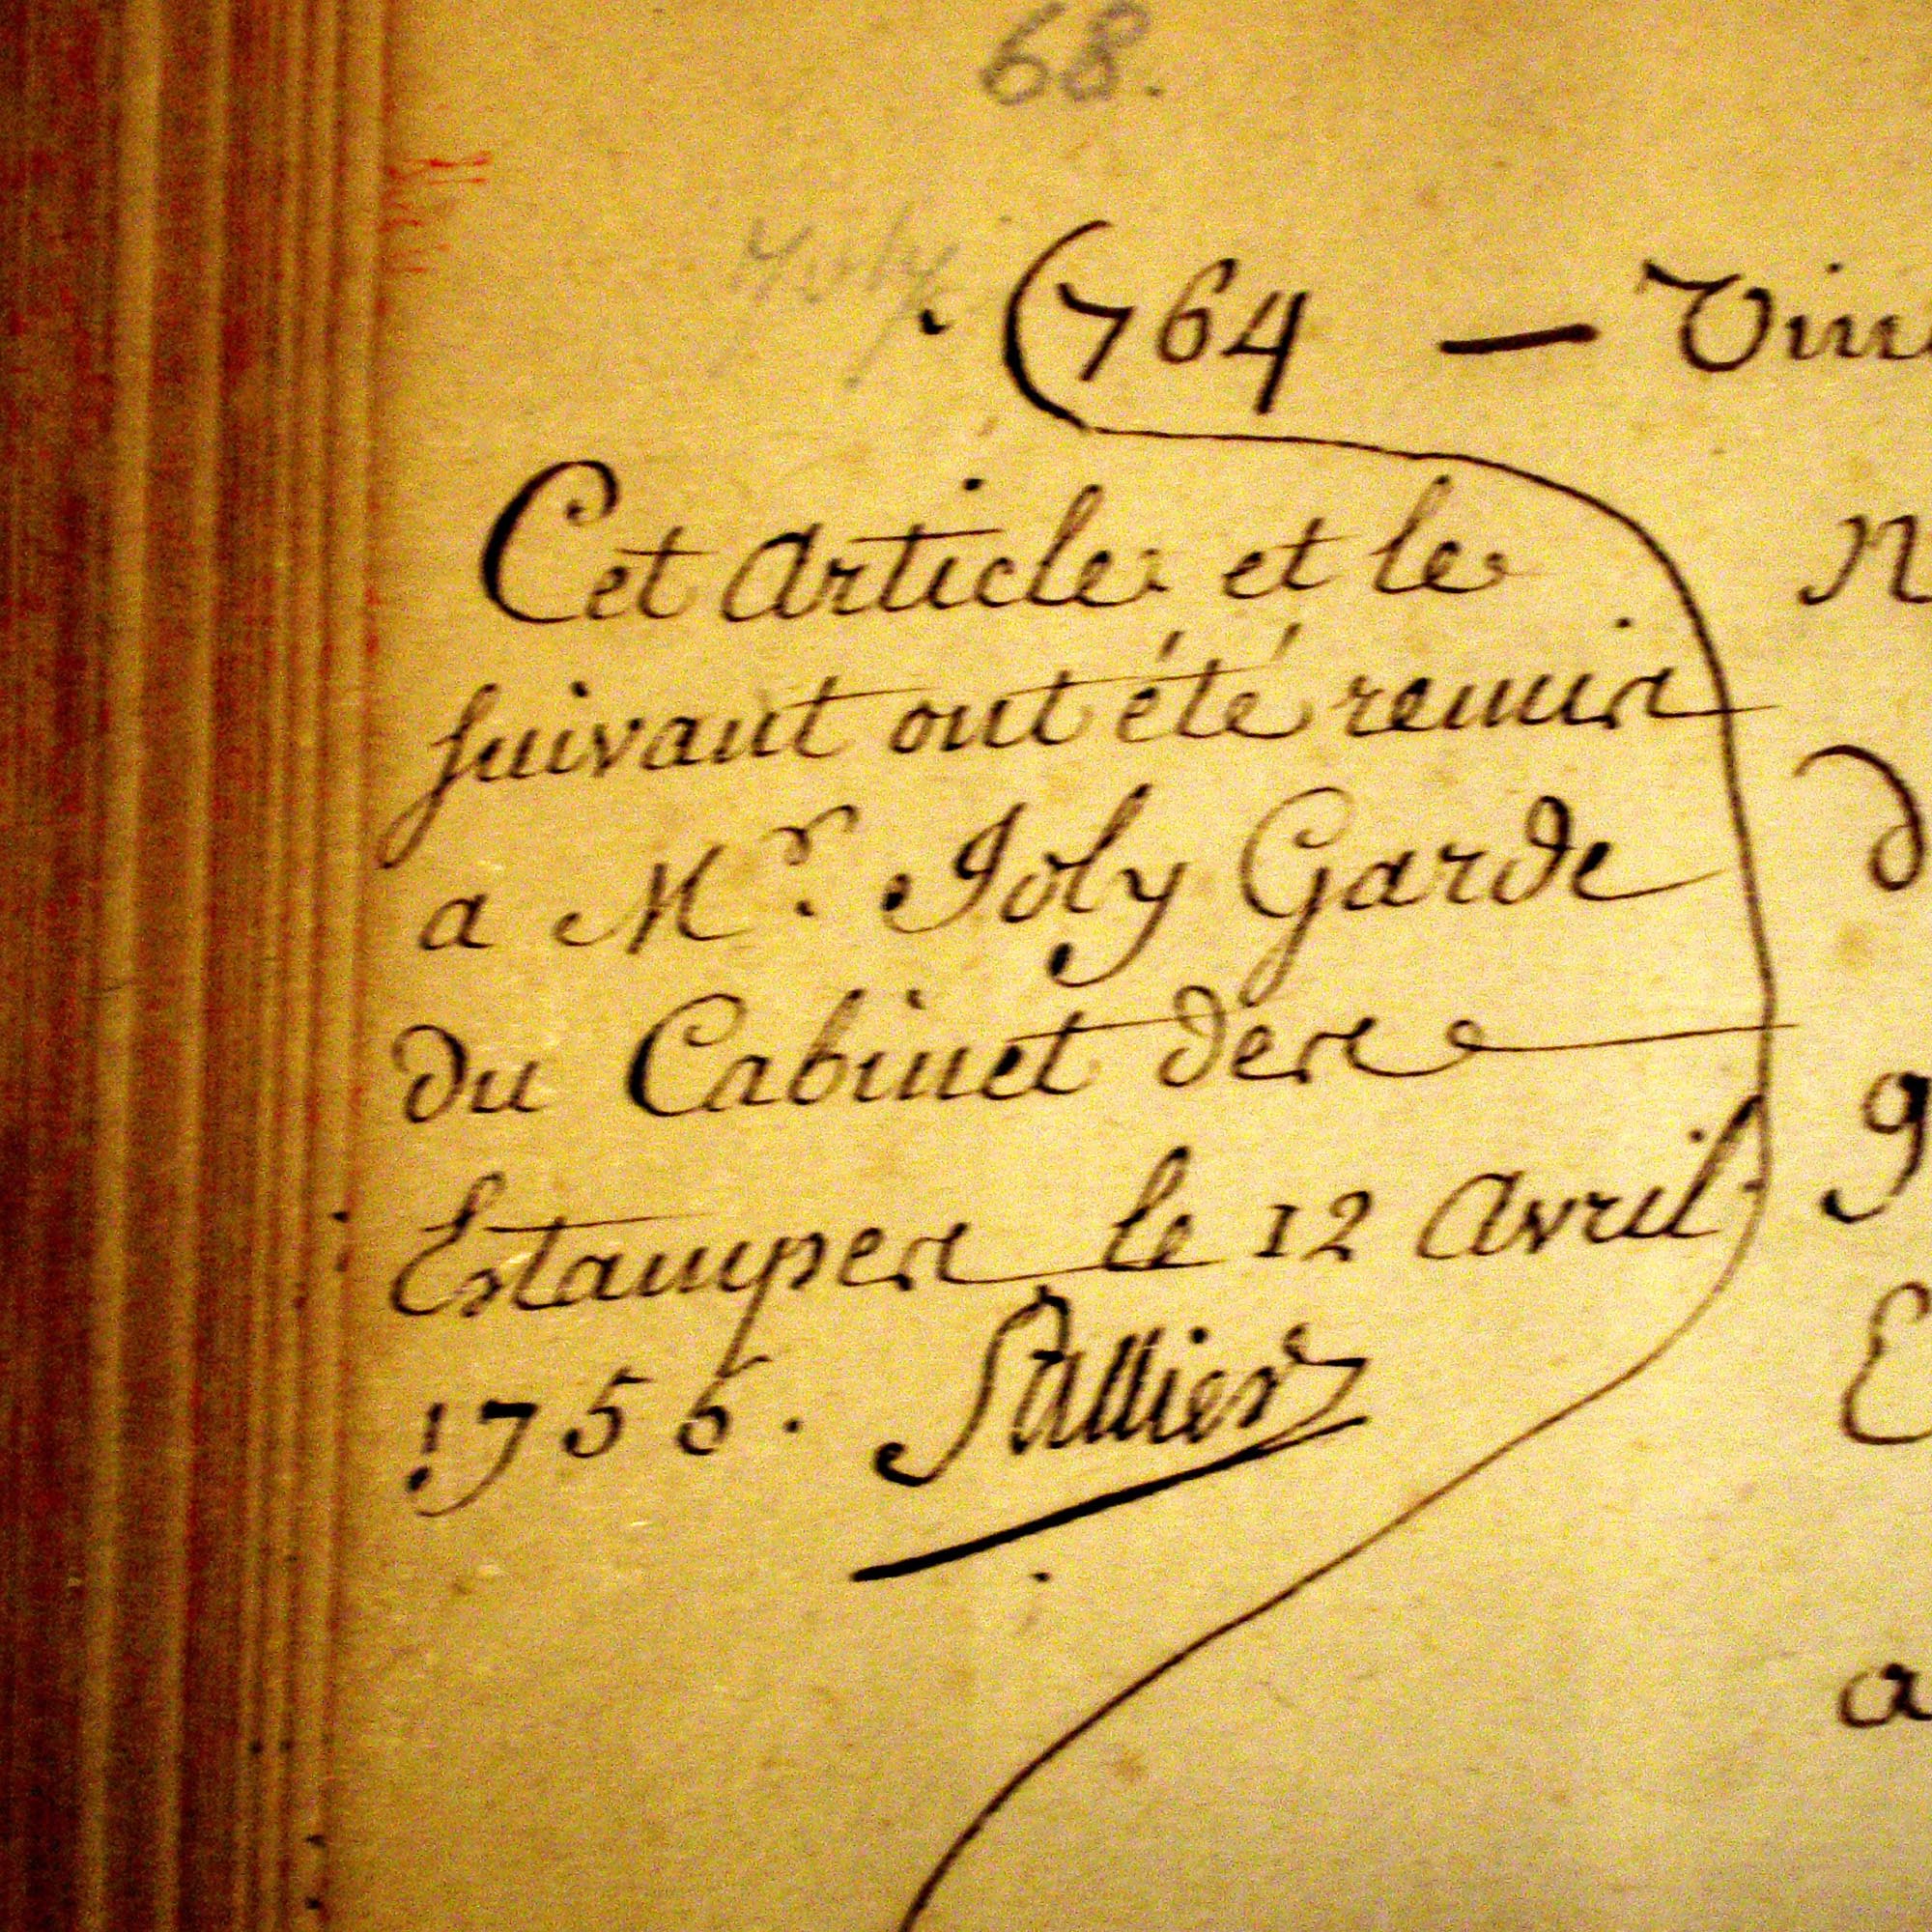 68.
764 —
Cet Article et le
suivant ont été remis
a Mr. Joly Garde
du Cabinet des
Estampes le 12 Avril
1756. Sallier